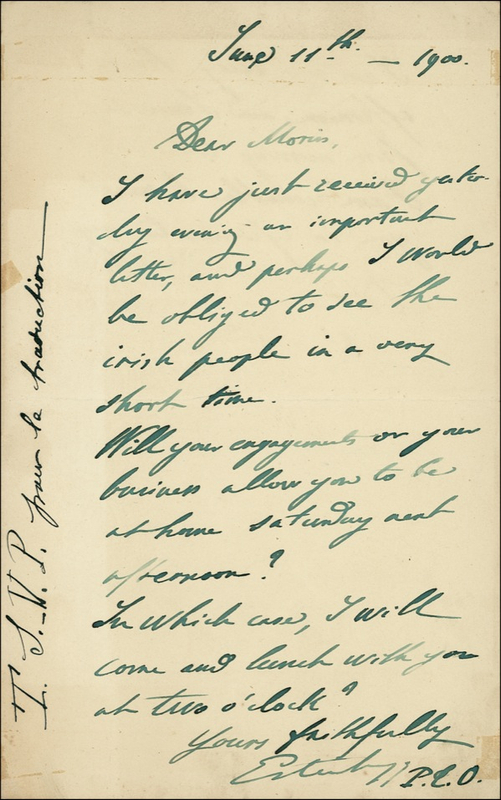 June 11th — 1900.
Dear Morris,
I have just received yester-
day evening an important
letter, and perhaps I would
be obliged to see the
irish people in a very
short time.
Will your engagements or your
business allow you to be
at home saturday next
afternoon?
In which case, I will
come and lunch with you
at two o'clock?
Yours faithfully
P.L.O.
T. S. V. P. pour la traduction